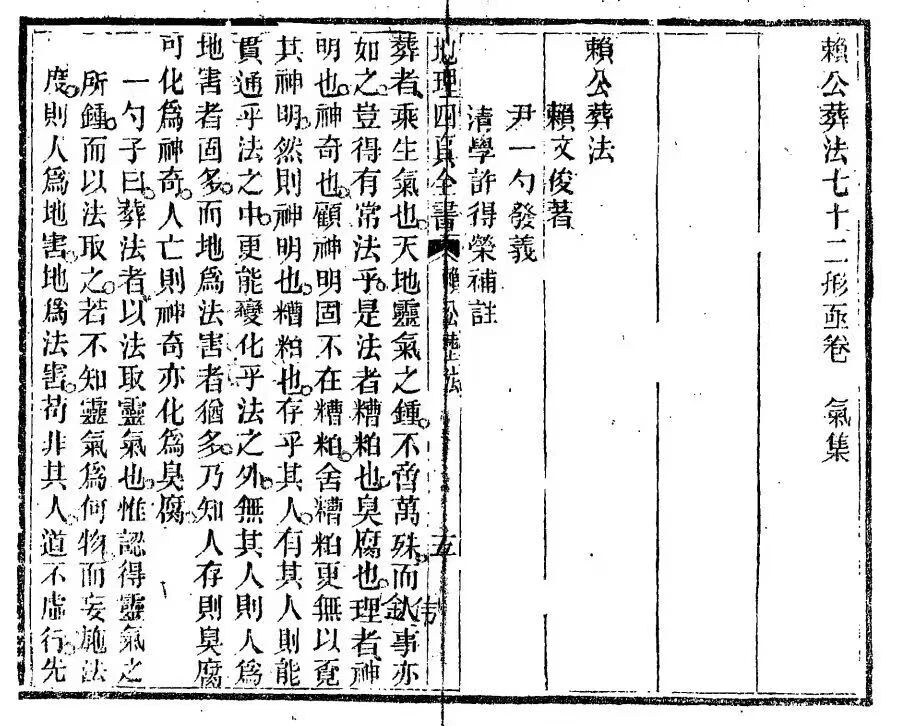 賴公葬法七十二形圅卷　氣集
賴公葬法
賴文俊著
尹一勺發義
清學許得榮補註
地理四真全書　賴公葬法　五
葬者乘生氣也天地靈氣之鍾不啻萬殊而人事亦
如之豈得有常法乎是法者糟粕也臭腐也理者神
明也神奇也顧神明固不在糟粕舍糟粕更無以覓
其神明然則神明也糟粕也存乎其人有其人則能
貫通乎法之中更能變化乎法之外無其人則人爲
地害者固多而地爲法害者猶多乃知人存則臭腐
可化爲神奇人亡則神奇亦化爲臭腐
一勺子曰葬法者以法取靈氣也惟認得靈氣之
所鍾而以法取之若不知靈氣爲何物而妄施法
度則人爲地害地爲法害苟非其人道不虛行先